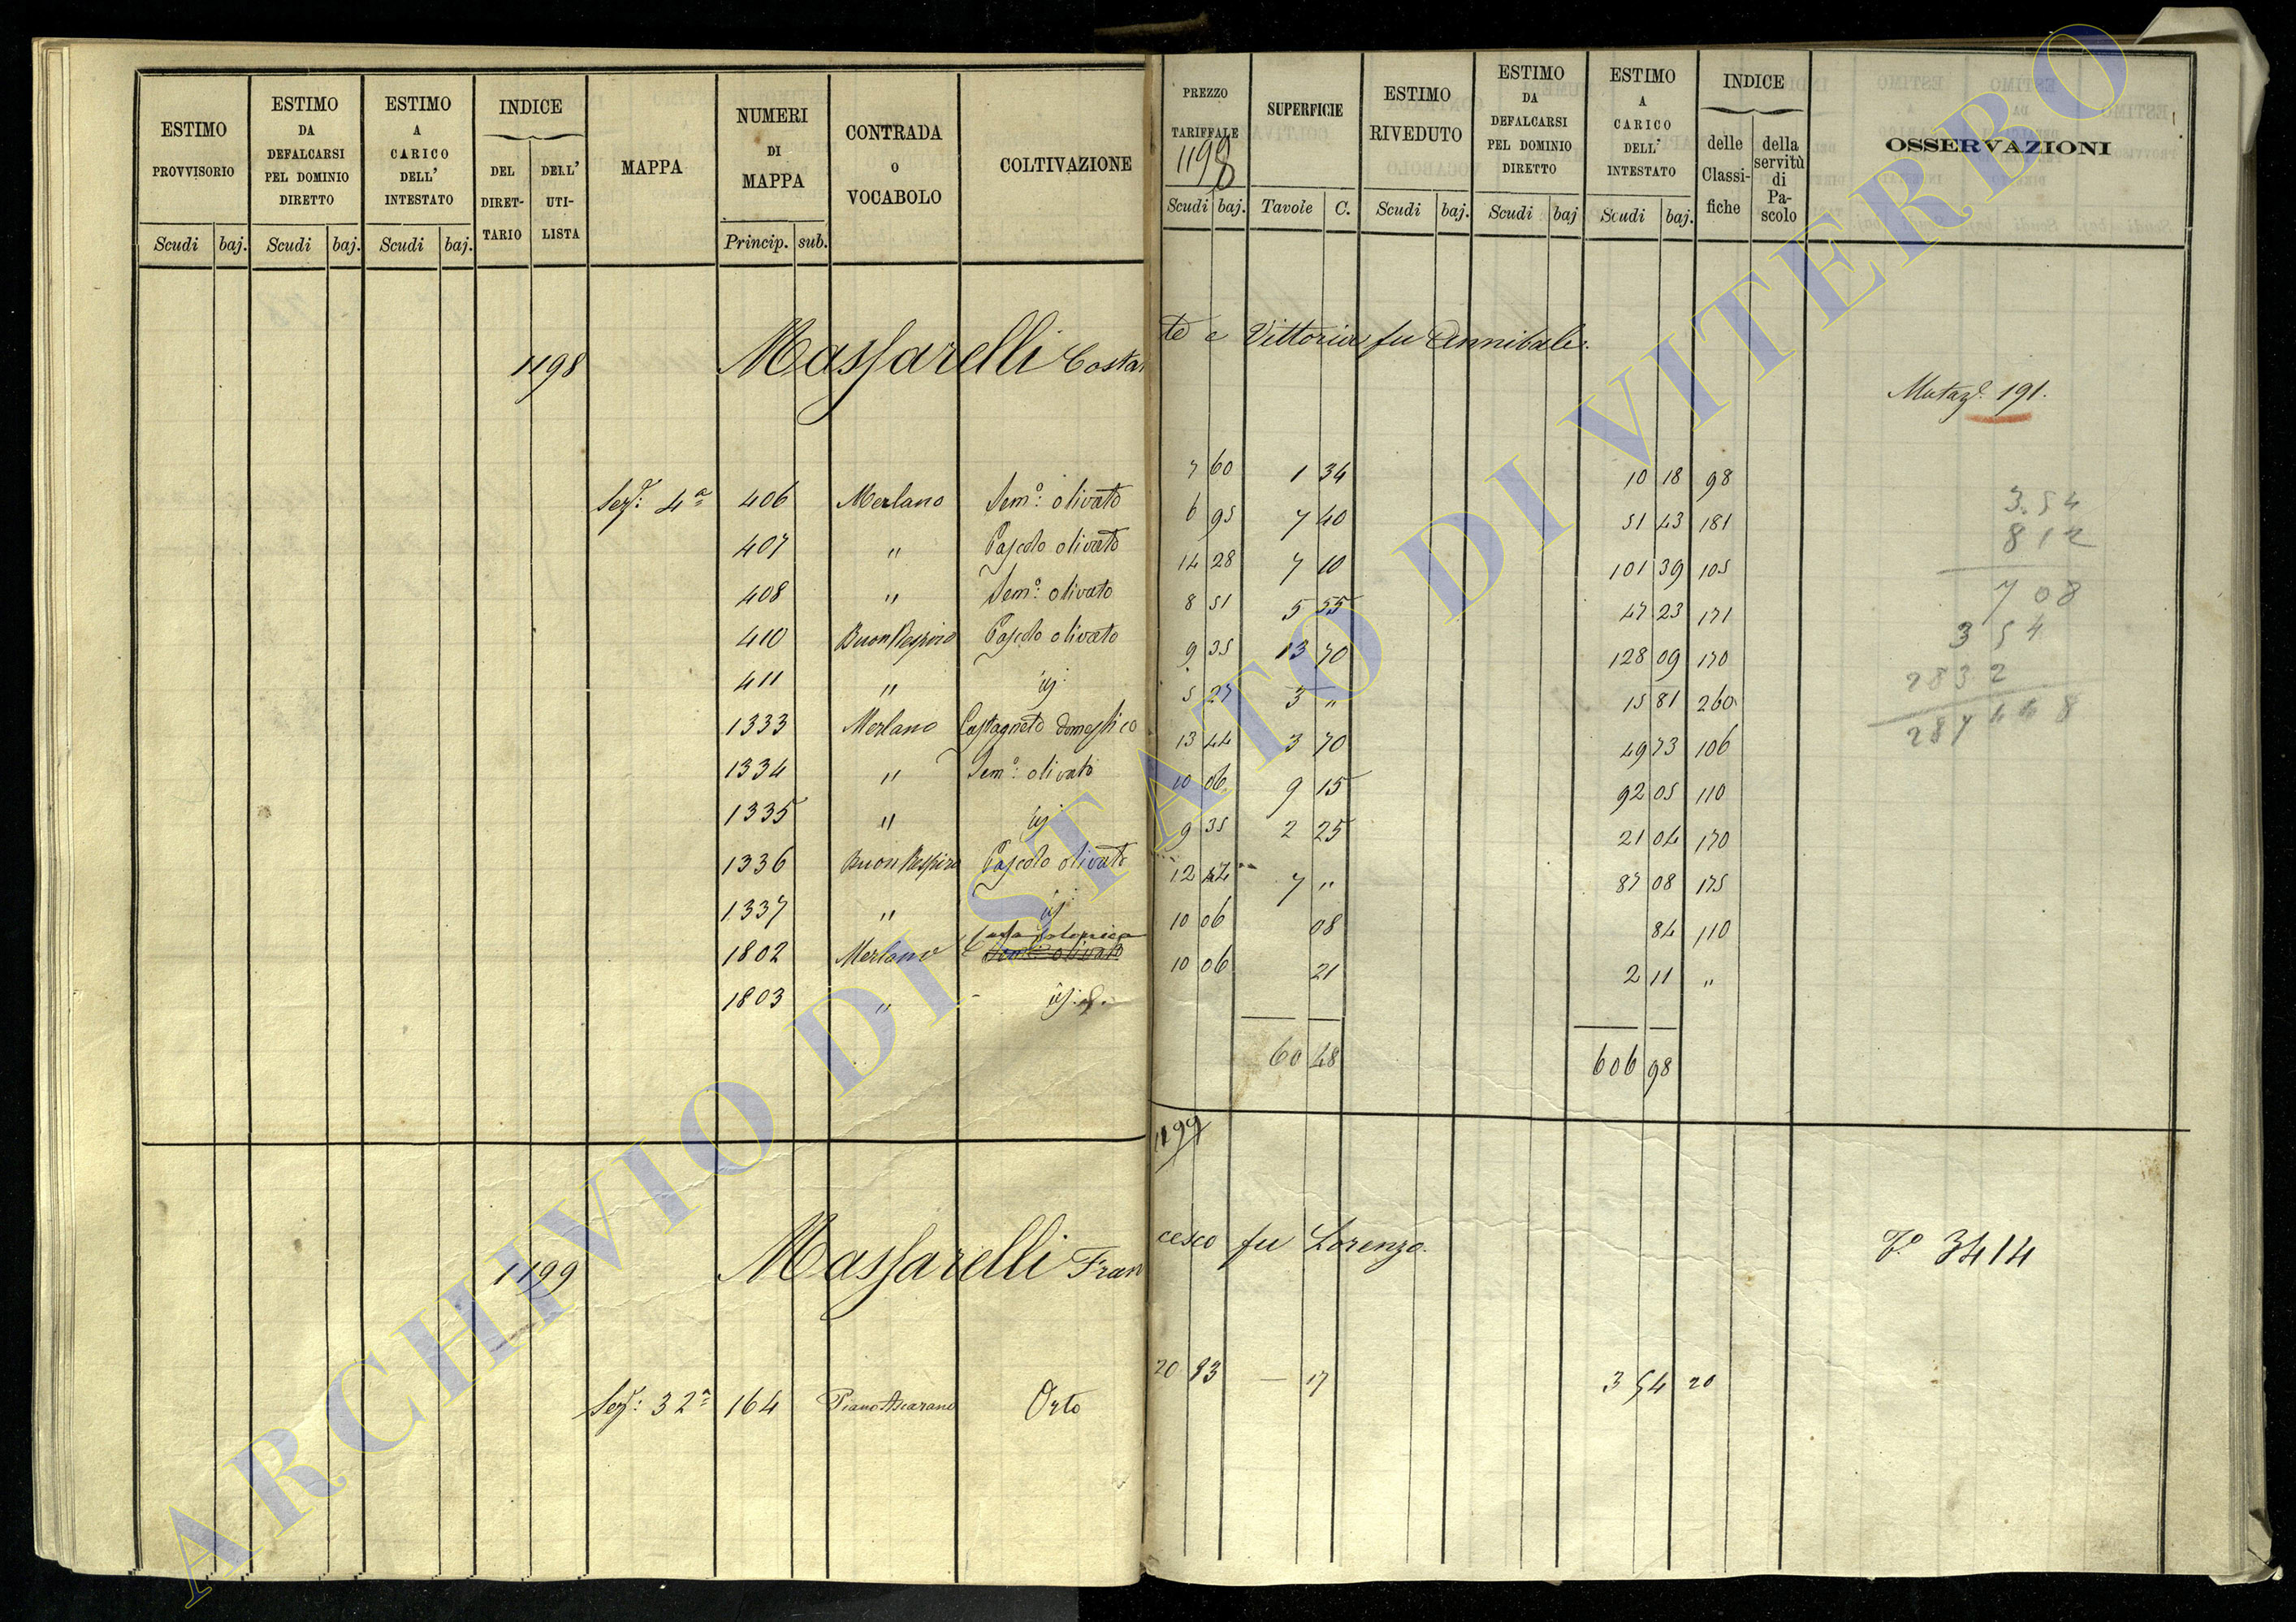 ESTIMO PROVVISORIO Scudi baj. | ESTIMO DA DEFALCARSI PEL DOMINIO DIRETTO Scudi baj. | ESTIMO A CARICO DELL' INTESTATO Scudi baj. | INDICE DEL DIRETTARIO DELL' UTILISTA | MAPPA | NUMERI DI MAPPA Princip. sub. | CONTRADA o VOCABOLO | COLTIVAZIONE | PREZZO TARIFFALE 1198 Scudi baj. | SUPERFICIE Tavole C. | ESTIMO RIVEDUTO Scudi baj. | ESTIMO DA DEFALCARSI PEL DOMINIO DIRETTO Scudi baj | ESTIMO A CARICO DELL' INTESTATO Scudi baj. | INDICE delle Classifiche della servitù di Pascolo | OSSERVAZIONI
1198 Massarelli Costante e Vittoria fu Annibale.
Mutaz.e 191.
Sez.: 4a 406 Merlano Sem.o: olivato 7 60 1 34 10 18 98
407 " Pascolo olivato 6 95 7 40 51 43 181
408 " Sem.o: olivato 14 28 7 10 101 39 105
410 Buon Respiro Pascolo olivato 8 51 5 55 47 23 171
411 " id 9 35 13 70 128 09 170
1333 Merlano Castagneto domestico 5 27 3 " 15 81 260
1334 " Sem.o: olivato 13 44 3 70 49 73 106
1335 " id 10 06 9 15 92 05 110
1336 Buon Respiro Pascolo olivato 9 35 2 25 21 04 170
1337 " id 12 44 7 " 87 08 175
1802 Merlano Casa colonica Sem.o: olivato 10 06 08 84 110
1803 " id 10 06 21 2 11 "
60 48 606 98
3.54
812
708
354
2832
287448
1199
1199 Massarelli Francesco fu Lorenzo.
V.o 3414
Sez.: 32a 164 Piano Ascarano Orto 20 83 — 17 3 54 20
ARCHIVIO DI STATO DI VITERBO